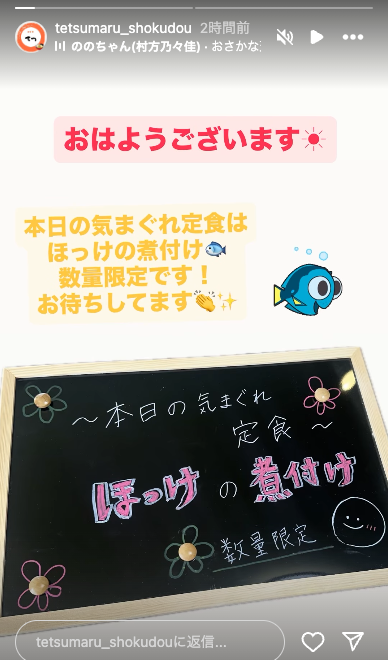 tetsumaru_shokudou 2時間前
ののちゃん(村方乃々佳)・おさかな
おはようございます☀
本日の気まぐれ定食は
ほっけの煮付け🐟
数量限定です！
お待ちしてます👏✨
～本日の気まぐれ
定食～
ほっけの煮付け
数量限定
tetsumaru_shokudouに返信...